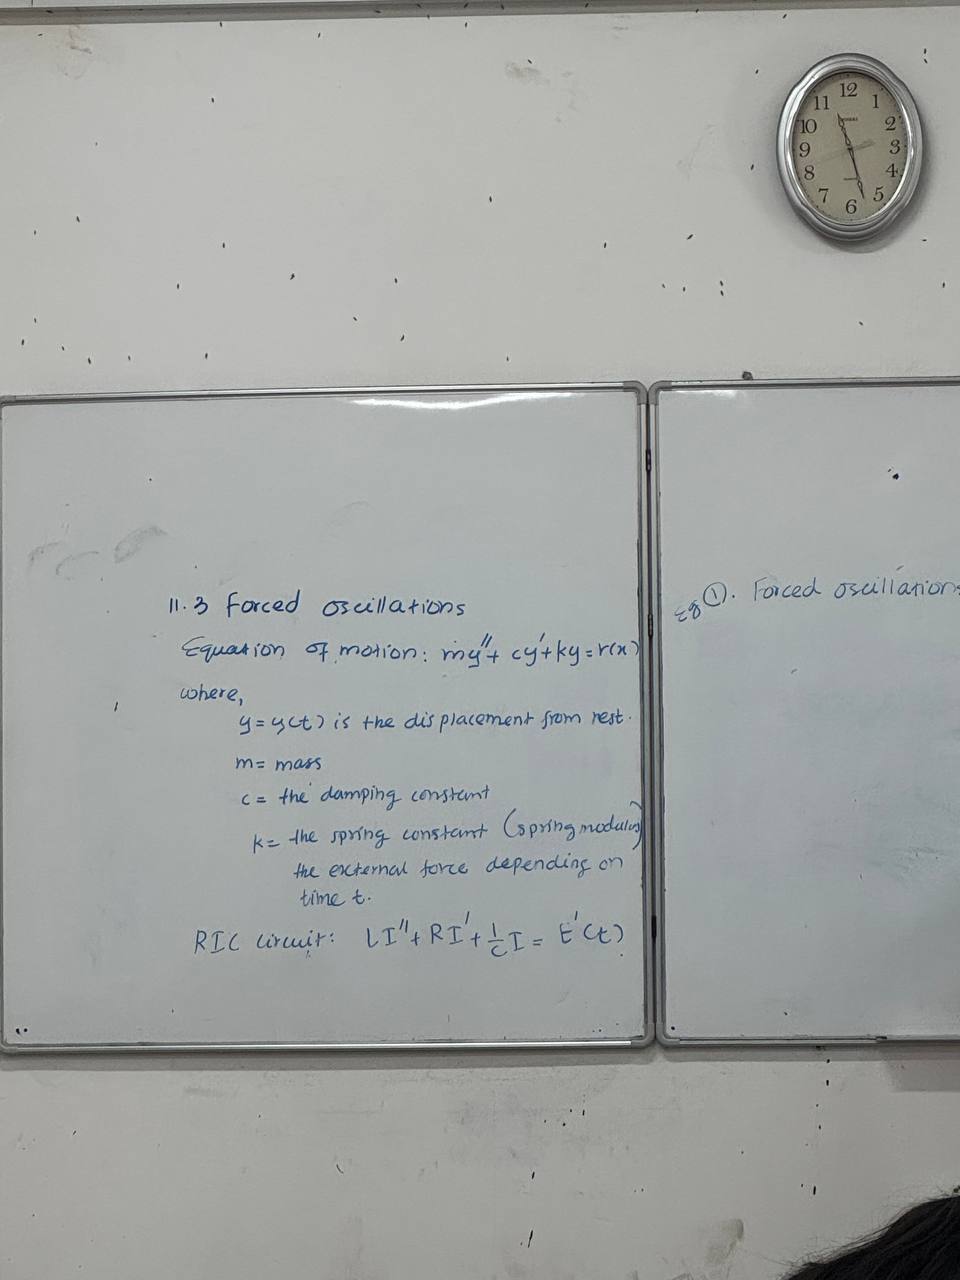 12
11 1
10 2
9 3
8 4
7 5
6
11.3 Forced oscillations
Equation of motion: my''+ cy'+ky=r(x)
where,
y=y(t) is the displacement from rest.
m= mass
c= the damping constant
k= the spring constant (spring modulus)
the external force depending on
time t.
RIC circuit: LI''+ RI'+ 1/C I = E'(t)
Eg ①. Forced oscillations